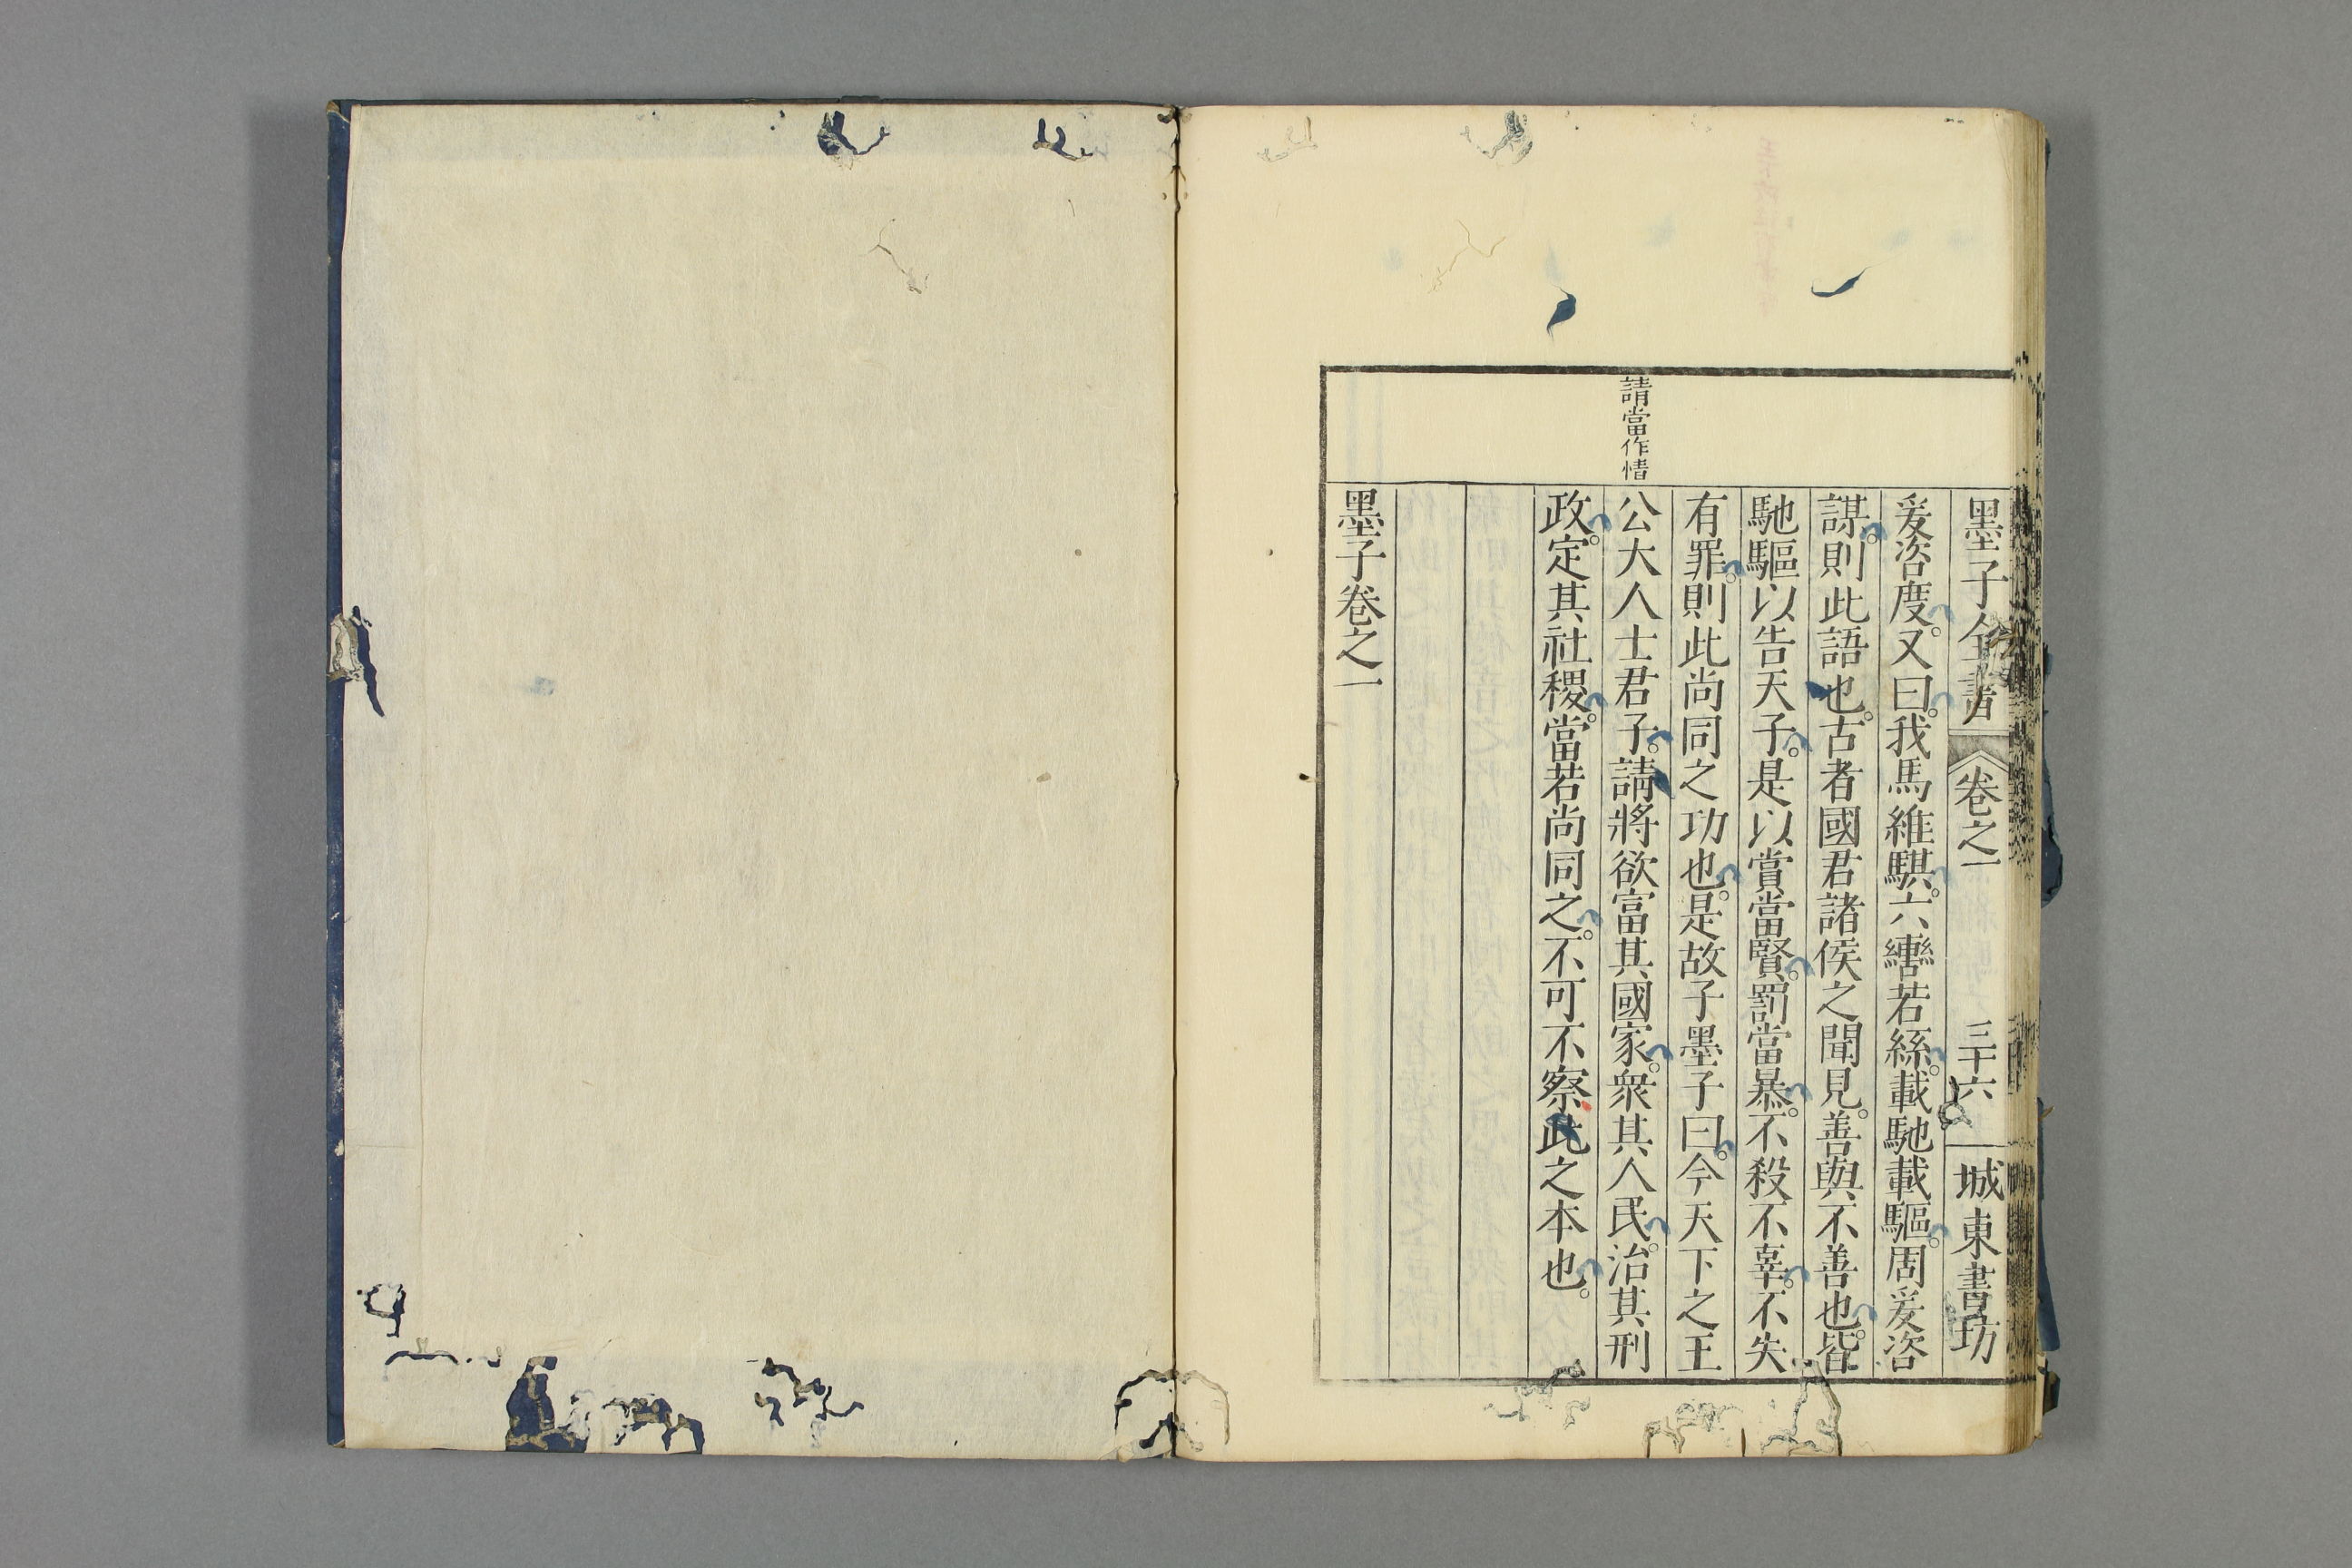 墨子全書 卷之一 三十六 城東書坊
爰咨度。又曰。我馬維騏。六轡若絲。載馳載驅。周爰咨
謀。則此語也。古者國君諸侯之聞見。善與不善也。皆
馳驅以告天子。是以賞當賢。罰當暴。不殺不辜。不失
有罪。則此尚同之功也。是故子墨子曰。今天下之王
請當作情
公大人士君子。請將欲富其國家。衆其人民。治其刑
政。定其社稷。當若尚同之。不可不察。此之本也。
墨子卷之一